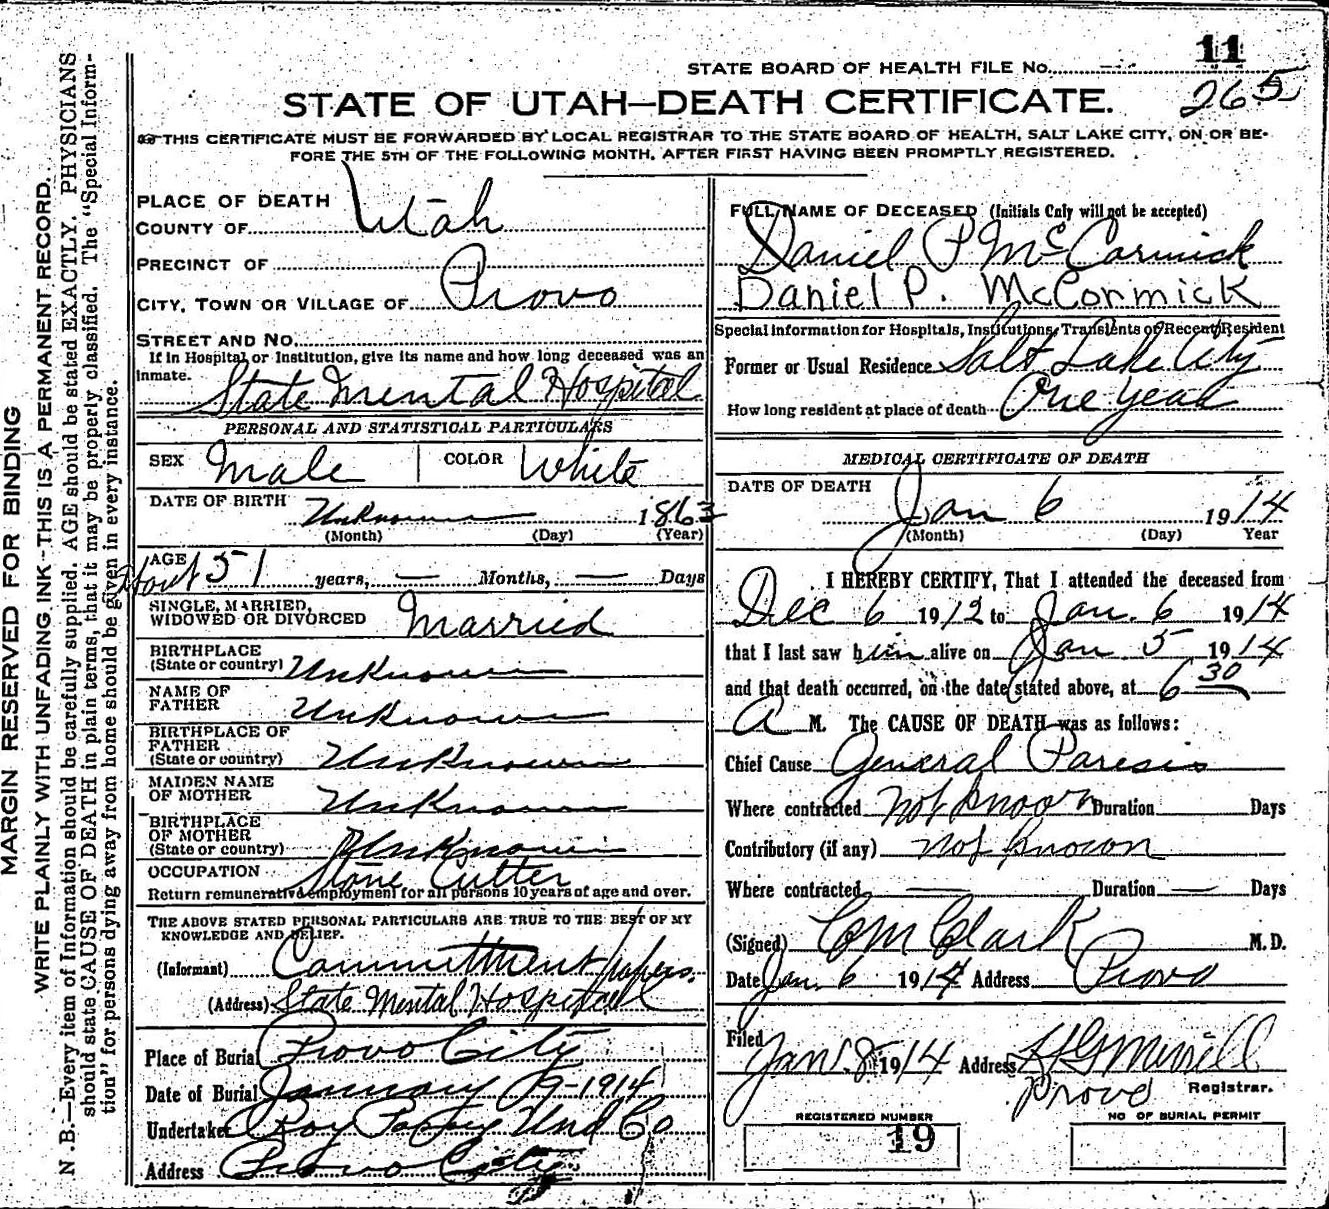 11
STATE BOARD OF HEALTH FILE No.
265
STATE OF UTAH—DEATH CERTIFICATE.
THIS CERTIFICATE MUST BE FORWARDED BY LOCAL REGISTRAR TO THE STATE BOARD OF HEALTH, SALT LAKE CITY, ON OR BE-
FORE THE 5TH OF THE FOLLOWING MONTH, AFTER FIRST HAVING BEEN PROMPTLY REGISTERED.
MARGIN RESERVED FOR BINDING
WRITE PLAINLY WITH UNFADING INK--THIS IS A PERMANENT RECORD.
N.B.—Every item of Information should be carefully supplied. AGE should be stated EXACTLY. PHYSICIANS
should state CAUSE OF DEATH in plain terms, that it may be properly classified. The "Special Inform-
tion" for persons dying away from home should be given in every instance.
PLACE OF DEATH
COUNTY OF Utah
PRECINCT OF
CITY, TOWN OR VILLAGE OF Provo
STREET AND No.
If in Hospital or Institution, give its name and how long deceased was an
inmate.
State Mental Hospital
PERSONAL AND STATISTICAL PARTICULARS
SEX Male COLOR White
DATE OF BIRTH Unknown 1863
(Month) (Day) (Year)
AGE
About 51 years, — Months, — Days
SINGLE, MARRIED,
WIDOWED OR DIVORCED Married
BIRTHPLACE
(State or country) Unknown
NAME OF
FATHER Unknown
BIRTHPLACE OF
FATHER
(State or country) Unknown
MAIDEN NAME
OF MOTHER Unknown
BIRTHPLACE
OF MOTHER
(State or country) Unknown
OCCUPATION Stone Cutter
Return remunerative employment for all persons 10 years of age and over.
THE ABOVE STATED PERSONAL PARTICULARS ARE TRUE TO THE BEST OF MY
KNOWLEDGE AND BELIEF.
(Informant) Committment papers.
(Address) State Mental Hospital
Place of Burial Provo City
Date of Burial January 9-1914
Undertaker Roy Und Co
Address Provo City
FULL NAME OF DECEASED (Initials Only will not be accepted)
Daniel P McCormick
Daniel P. McCormick
Special Information for Hospitals, Institutions, Transients or Recent Resident
Former or Usual Residence Salt Lake City
How long resident at place of death One year
MEDICAL CERTIFICATE OF DEATH
DATE OF DEATH
Jan 6 1914
(Month) (Day) Year
I HEREBY CERTIFY, That I attended the deceased from
Dec 6 1912 to Jan. 6 1914
that I last saw him alive on Jan. 5 1914
and that death occurred, on the date stated above, at 6 30
A M. The CAUSE OF DEATH was as follows:
Chief Cause General Paresis
Where contracted not known Duration Days
Contributory (if any) not known
Where contracted — Duration — Days
(Signed) CM Clark M.D.
Date Jan. 6 1914 Address Provo
Filed
Jan. 8 1914 Address
Provo Registrar.
REGISTERED NUMBER
19
NO OF BURIAL PERMIT